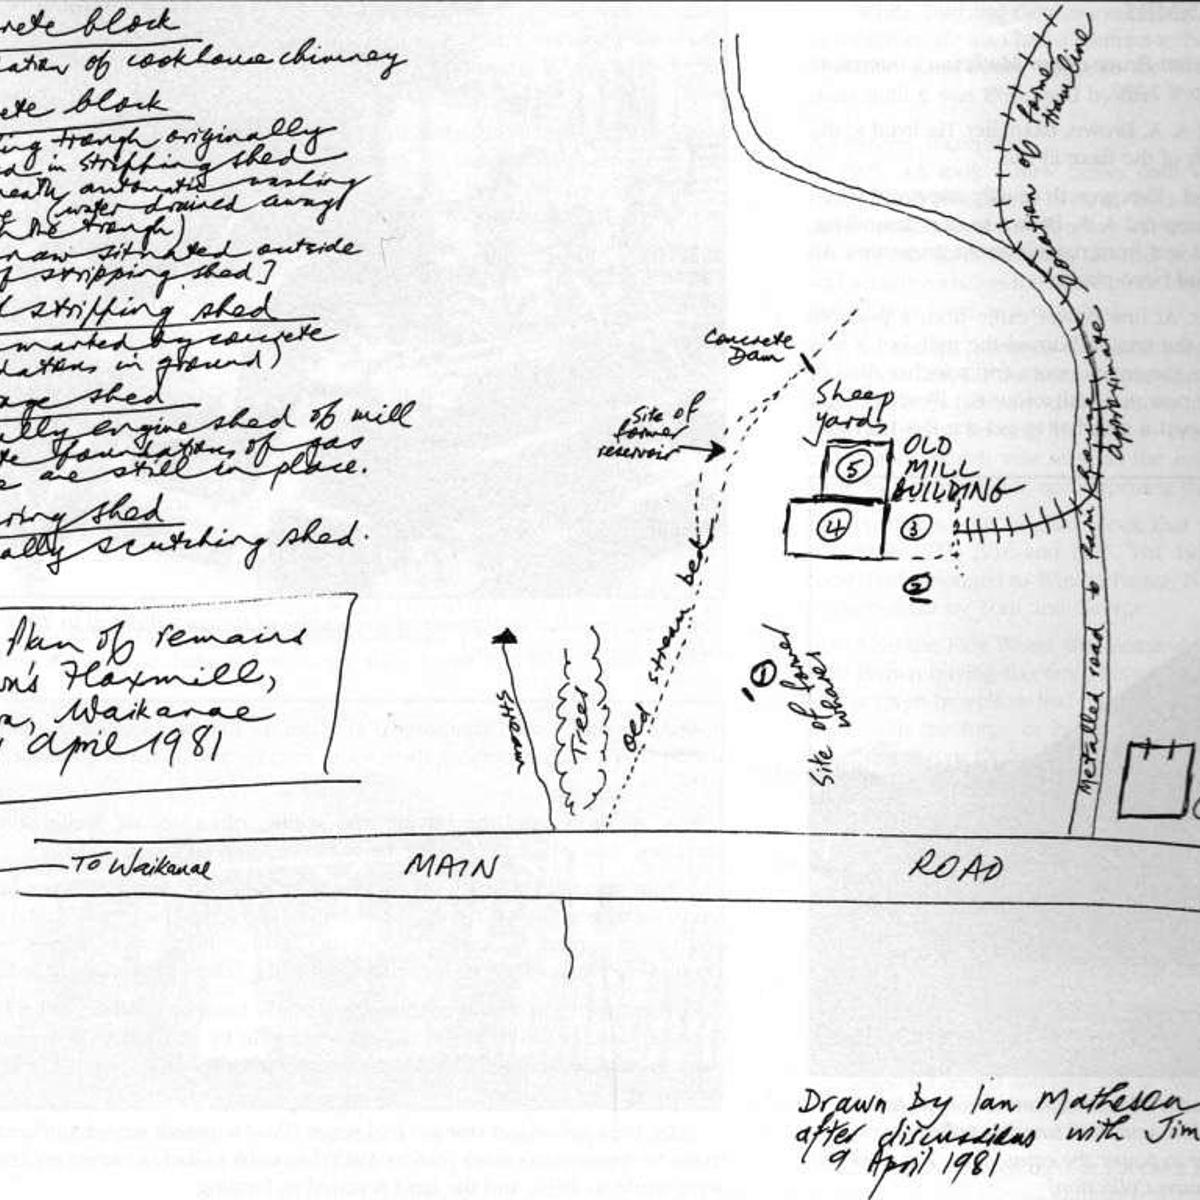 rete block
ation of cookhouse chimney
ete block
ing trough originally
in stripping shed
neath automatic washing
(water drained away
trough)
now situated outside
of stripping shed]
stripping shed
marked by concrete
dations in ground)
age shed
ally engine shed of mill
te foundations of gas
e are still in place.
ring shed
ally scutching shed.
Plan of remains
wn's Flaxmill,
a, Waikanae
april 1981
Formation of former
tramline
Concrete
Dam
Site of
former
reservoir
Sheep
yards
5
OLD
MILL
BUILDING
4
3
2
1
Site of former
whare
Old stream bed
Trees
Stream
Metalled road to farm (follows
approximate
To Waikanae
MAIN ROAD
Drawn by Ian Matheson
after discussions with Jim
9 April 1981